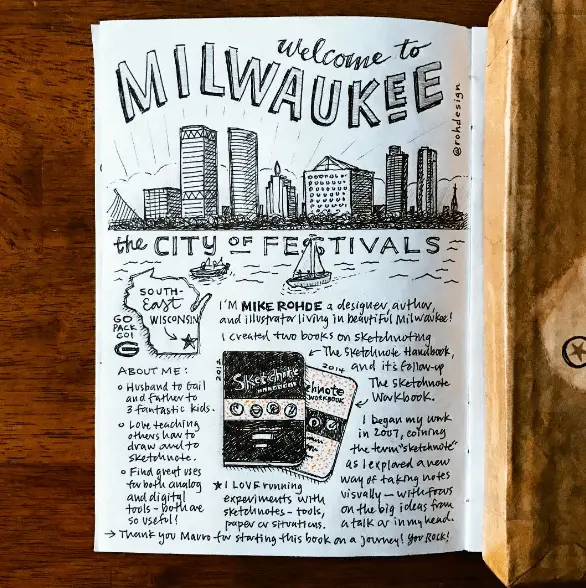 welcome to
MILWAUKEE
@rohdesign
the CITY OF FESTIVALS
SOUTH-
East
WISCONSIN
GO
PACK
GO!
G
I'M MIKE ROHDE a designer, author,
and illustrator living in beautiful Milwaukee!
I created two books on sketchnoting
The Sketchnote Handbook,
and it's follow-up
The Sketchnote
Workbook.
2012
2014
Sketchnote
HANDBOOK
chnote
WORKBOOK
I began my work
in 2007, coining
the term "sketchnote"
as I explored a new
way of taking notes
visually – with focus
on the big ideas from
a talk or in my head.
ABOUT ME:
Husband to Gail
and father to
3 fantastic kids.
Love teaching
others how to
draw and to
sketchnote.
Find great uses
for both analog
and digital
tools – both are
so useful!
★ I LOVE running
experiments with
sketchnotes – tools,
paper or situations.
→ Thank you Mauro for starting this book on a journey! You Rock!